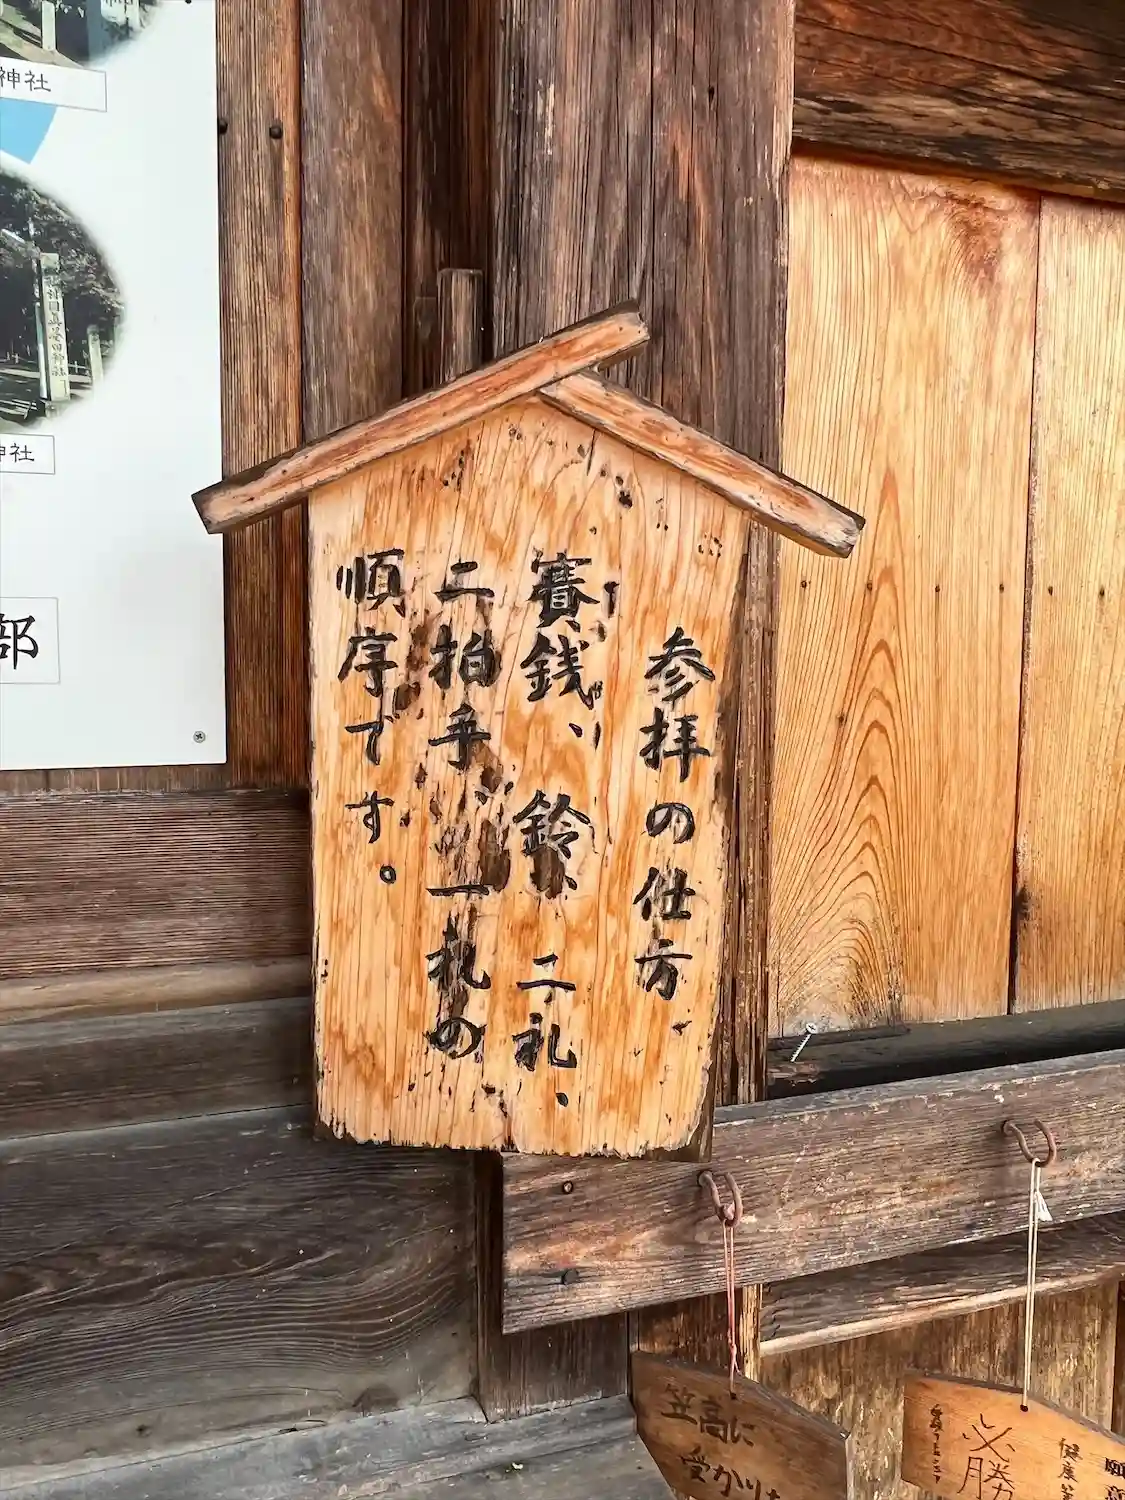 参拝の仕方
賽銭、鈴、二礼、
二拍手、一礼の
順序です。
神社
神社
部
笠高に
受かり
必勝
健康
願
意